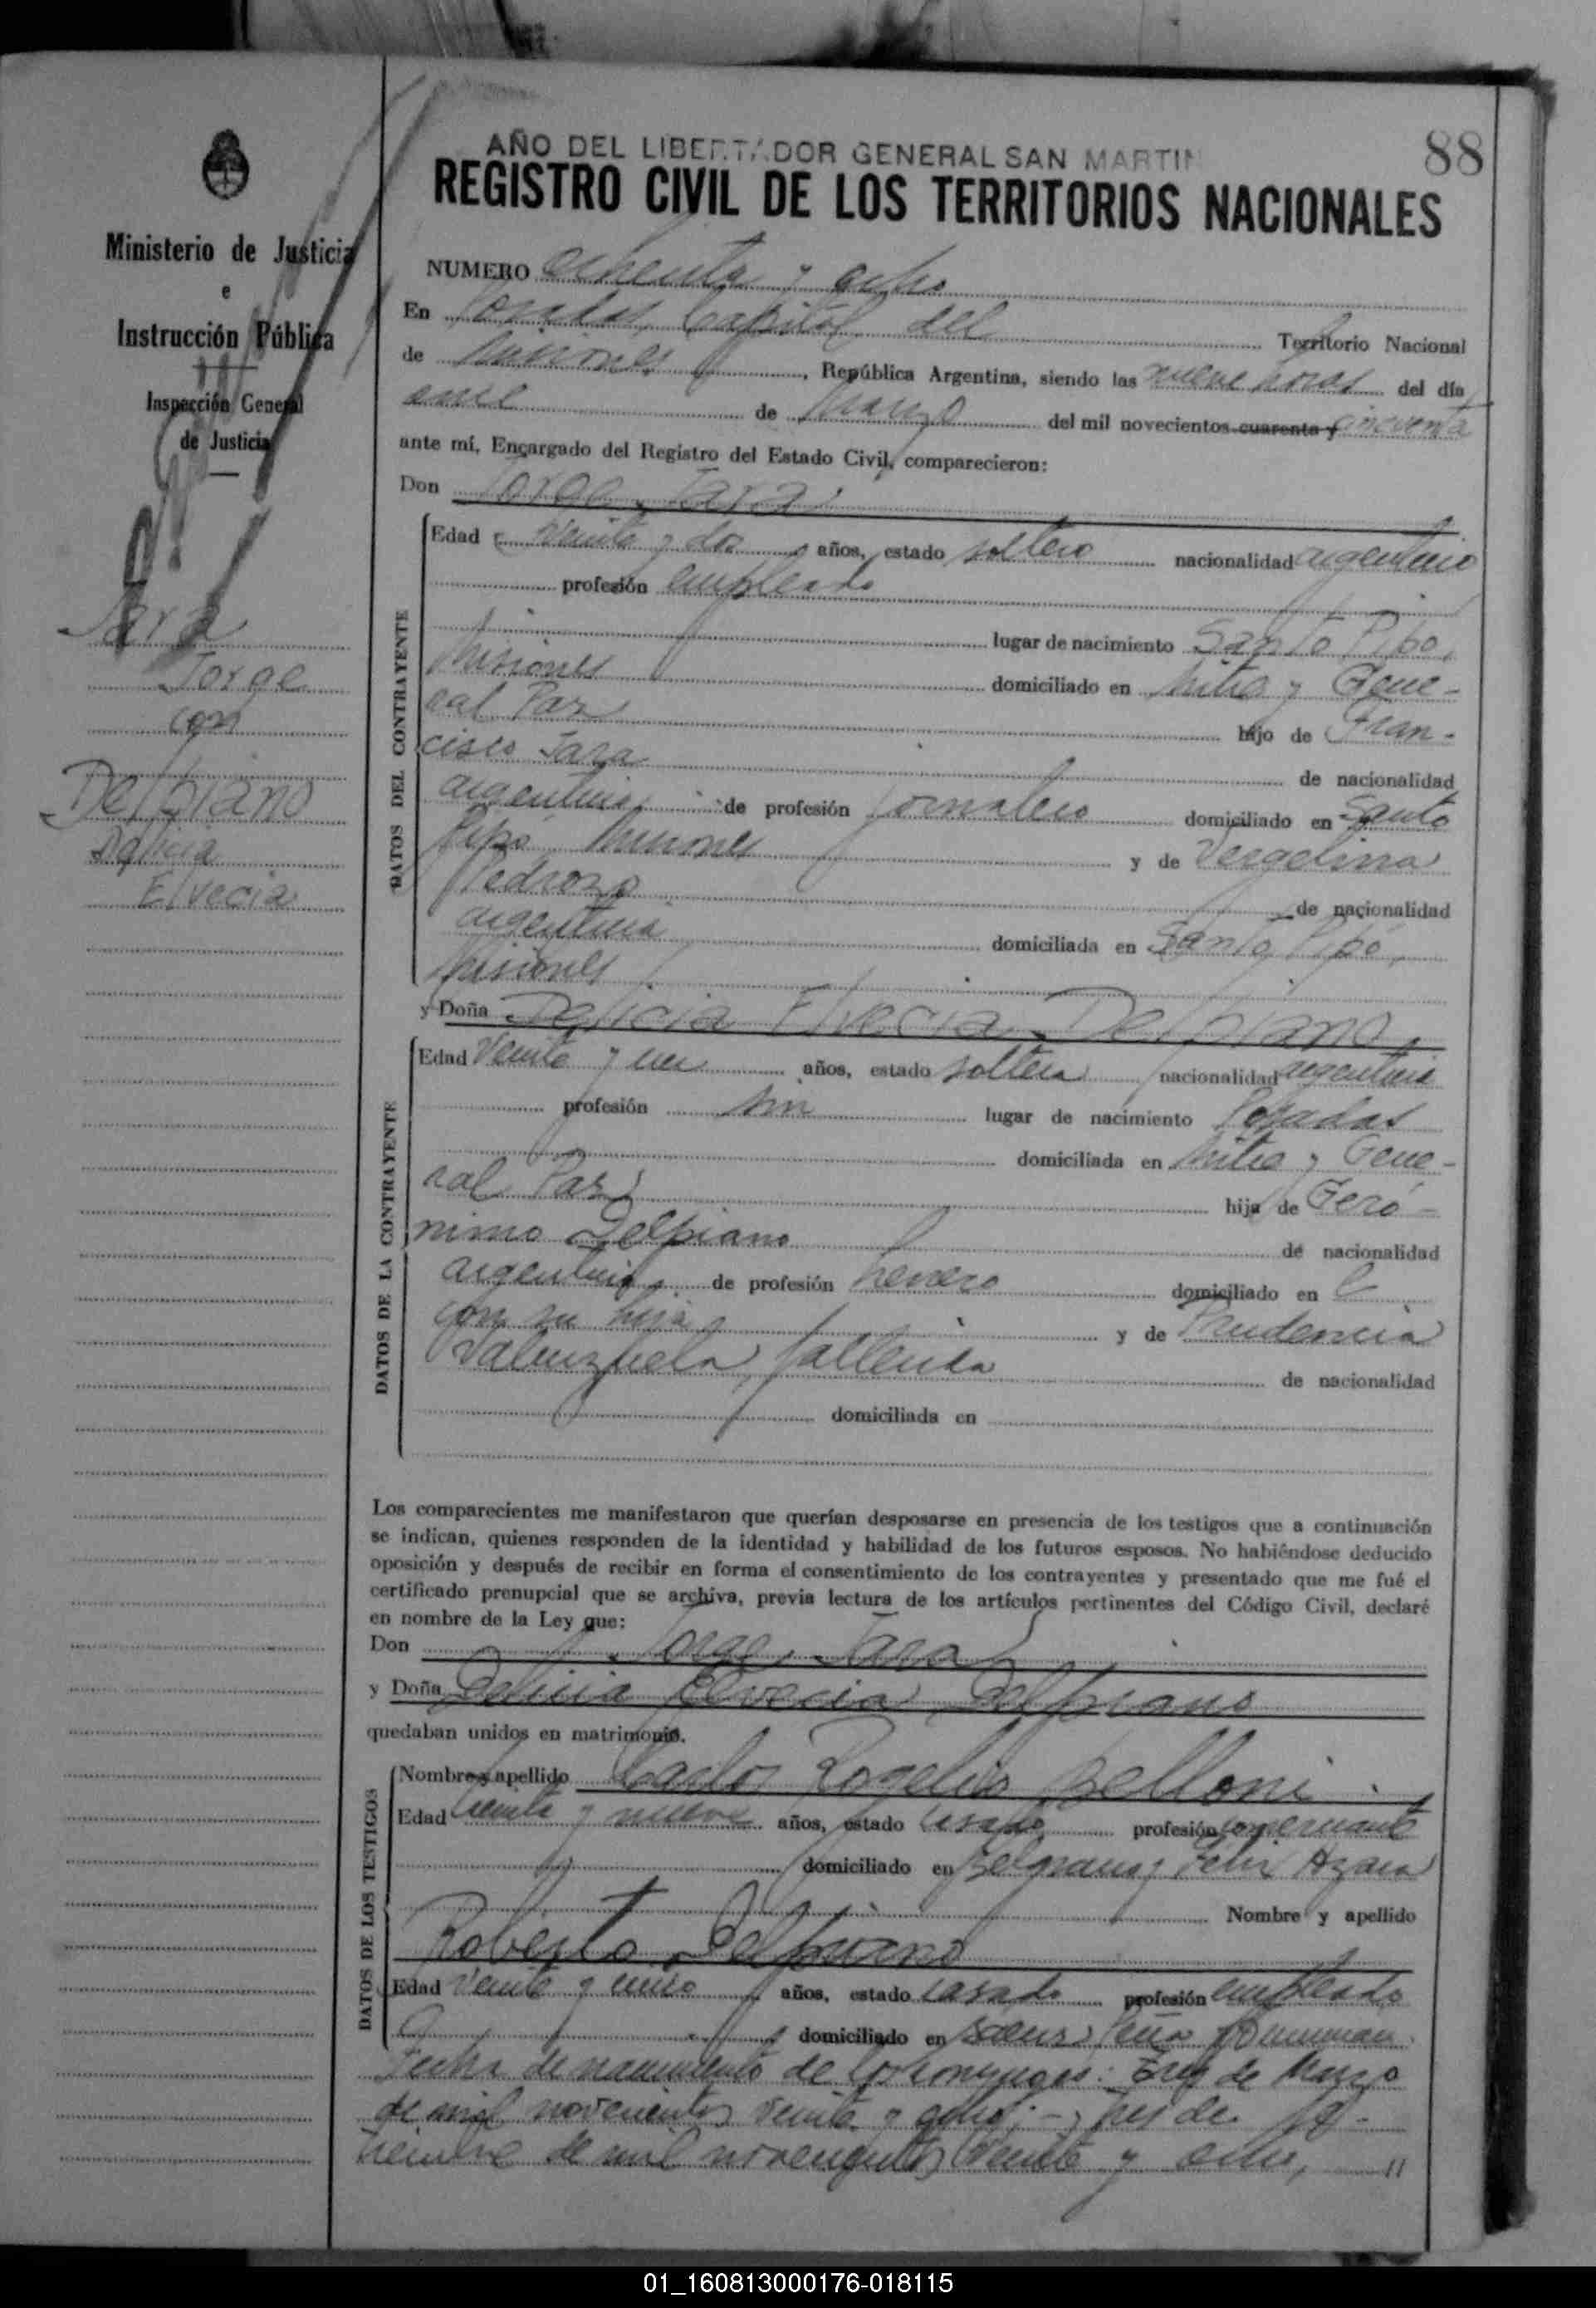 AÑO DEL LIBERTADOR GENERAL SAN MARTIN
88
REGISTRO CIVIL DE LOS TERRITORIOS NACIONALES
Ministerio de Justicia
e
Instrucción Pública
Inspección General
de Justicia
Jara
Jorge
con
Delpiano
Delicia
Elvecia
NUMERO ochenta y ocho
En Posadas, Capital del Territorio Nacional
de Misiones, República Argentina, siendo las nueve horas del día
once de Marzo del mil novecientos cuarenta y cincuenta
ante mí, Encargado del Registro del Estado Civil, comparecieron:
Don Jorge Jara
DATOS DEL CONTRAYENTE
Edad veinte y dos años, estado soltero nacionalidad argentino
profesión empleado
lugar de nacimiento Santo Pipó,
Misiones domiciliado en Mitre y Gene-
ral Paz hijo de Fran-
cisco Jara de nacionalidad
argentino, de profesión jornalero domiciliado en Santo
Pipó, Misiones y de Vergelina
Pedrozo de nacionalidad
argentina domiciliada en Santo Pipó,
Misiones
y Doña Delicia Elvecia Delpiano
DATOS DE LA CONTRAYENTE
Edad veinte y un años, estado soltera nacionalidad argentina
profesión sin lugar de nacimiento Posadas
domiciliada en Mitre y Gene-
ral Paz hija de Geró-
nimo Delpiano de nacionalidad
argentino, de profesión herrero domiciliado en
con su hija y de Prudencia
Valenzuela, fallecida de nacionalidad
domiciliada en
Los comparecientes me manifestaron que querían desposarse en presencia de los testigos que a continuación
se indican, quienes responden de la identidad y habilidad de los futuros esposos. No habiéndose deducido
oposición y después de recibir en forma el consentimiento de los contrayentes y presentado que me fué el
certificado prenupcial que se archiva, previa lectura de los artículos pertinentes del Código Civil, declaré
en nombre de la Ley que:
Don Jorge Jara
y Doña Delicia Elvecia Delpiano
quedaban unidos en matrimonio.
DATOS DE LOS TESTIGOS
Nombre y apellido Carlos Rogelio Belloni
Edad treinta y nueve años, estado casado profesión comerciante
domiciliado en Belgrano y Félix Azara
Nombre y apellido
Roberto Delpiano
Edad veinte y cinco años, estado casado profesión empleado
domiciliado en Saenz Peña y Tucumán.
Fecha de nacimiento de los conyuges: Tres de Marzo
de mil novecientos veinte y ocho; - tres de se-
tiembre de mil novecientos veinte y ocho,
01_160813000176-018115